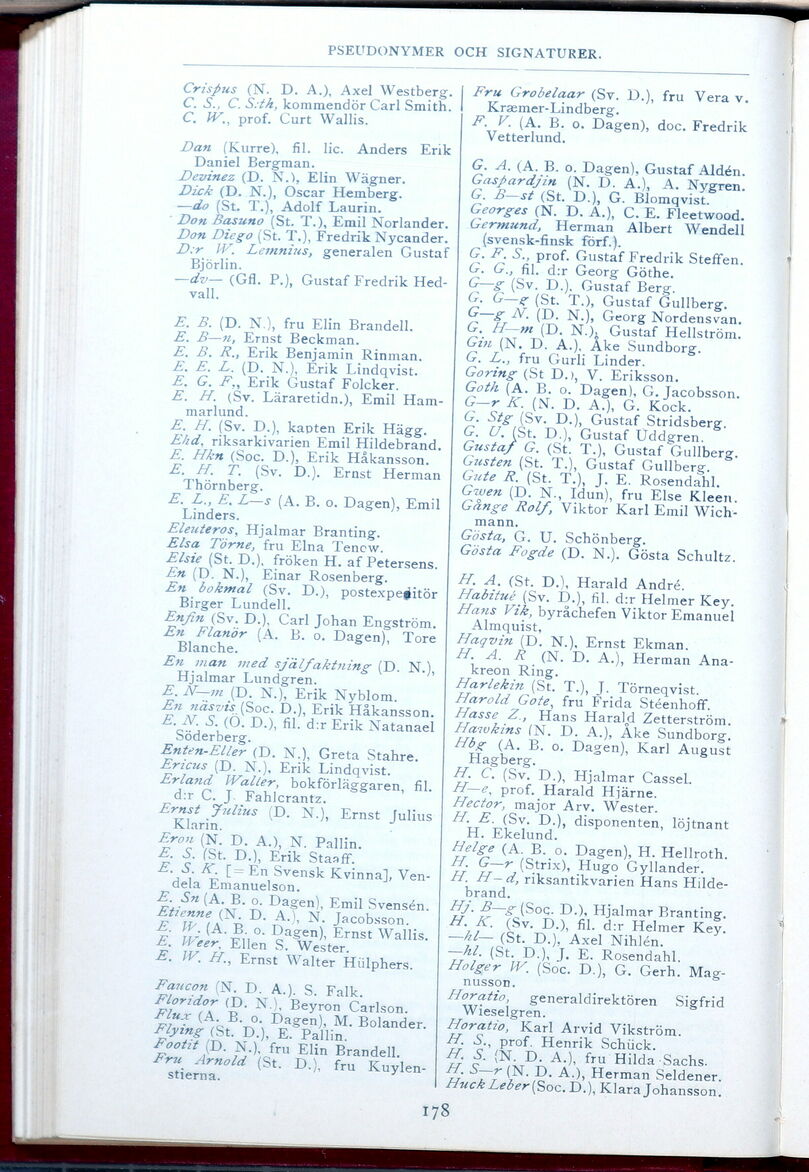 PSEUDONYMER OCH SIGNATURER.
Crispus (N. D. A.), Axel Westberg.
C. S., C. S:th, kommendör Carl Smith.
C. W., prof. Curt Wallis.
Dan (Kurre), fil. lic. Anders Erik
Daniel Bergman.
Devinez (D. N.), Elin Wägner.
Dick (D. N.), Oscar Hemberg.
—do (St. T.), Adolf Laurin.
Don Basuno (St. T.), Emil Norlander.
Don Diego (St. T.), Fredrik Nycander.
D:r W. Lemnius, generalen Gustaf
Björlin.
—dv— (Gfl. P.), Gustaf Fredrik Hed-
vall.
E. B. (D. N.), fru Elin Brandell.
E. B—n, Ernst Beckman.
E. B. R., Erik Benjamin Rinman.
E. E. L. (D. N.), Erik Lindqvist.
E. G. F., Erik Gustaf Folcker.
E. H. (Sv. Läraretidn.), Emil Ham-
marlund.
E. H. (Sv. D.), kapten Erik Hägg.
Ehd, riksarkivarien Emil Hildebrand.
E. Hkn (Soc. D.), Erik Håkansson.
E. H. T. (Sv. D.). Ernst Herman
Thörnberg.
E. L., E. L—s (A. B. o. Dagen), Emil
Linders.
Eleuteros, Hjalmar Branting.
Elsa Törne, fru Elna Tenow.
Elsie (St. D.), fröken H. af Petersens.
En (D. N.), Einar Rosenberg.
En bokmal (Sv. D.), postexpeditör
Birger Lundell.
Enfin (Sv. D.), Carl Johan Engström.
En Flanör (A. B. o. Dagen), Tore
Blanche.
En man med själfaktning (D. N.),
Hjalmar Lundgren.
E. N—m (D. N.), Erik Nyblom.
En näsvis (Soc. D.), Erik Håkansson.
E. N. S. (Ö. D.), fil. d:r Erik Natanael
Söderberg.
Enten-Eller (D. N.), Greta Stahre.
Ericus (D. N.), Erik Lindqvist.
Erland Walter, bokförläggaren, fil.
d:r C. J. Fahlcrantz.
Ernst Julius (D. N.), Ernst Julius
Klarin.
Eron (N. D. A.), N. Pallin.
E. S. (St. D.), Erik Staaff.
E. S. K. [= En Svensk Kvinna], Ven-
dela Emanuelson.
E. Sn (A. B. o. Dagen), Emil Svensén.
Etienne (N. D. A.), N. Jacobsson.
E. W. (A. B. o. Dagen), Ernst Wallis.
E. Weer, Ellen S. Wester.
E. W. H., Ernst Walter Hülphers.
Faucon (N. D. A.). S. Falk.
Floridor (D. N.), Beyron Carlson.
Flux (A. B. o. Dagen), M. Bolander.
Flying (St. D.), E. Pallin.
Footit (D. N.), fru Elin Brandell.
Fru Arnold (St. D.), fru Kuylen-
stierna.
Fru Grobelaar (Sv. D.), fru Vera v.
Kræmer-Lindberg.
F. V. (A. B. o. Dagen), doc. Fredrik
Vetterlund.
G. A. (A. B. o. Dagen), Gustaf Aldén.
Gaspardjin (N. D. A.), A. Nygren.
G. B—st (St. D.), G. Blomqvist.
Georges (N. D. A.), C. E. Fleetwood.
Germund, Herman Albert Wendell
(svensk-finsk förf.).
G. F. S., prof. Gustaf Fredrik Steffen.
G. G., fil. d:r Georg Göthe.
G—g (Sv. D.), Gustaf Berg.
G. G—g (St. T.), Gustaf Gullberg.
G—g N. (D. N.), Georg Nordensvan.
G. H—m (D. N.), Gustaf Hellström.
Gin (N. D. A.), Åke Sundborg.
G. L., fru Gurli Linder.
Goring (St D.), V. Eriksson.
Goth (A. B. o. Dagen), G. Jacobsson.
G—r K. (N. D. A.), G. Kock.
G. Stg (Sv. D.), Gustaf Stridsberg.
G. U. (St. D.), Gustaf Uddgren.
Gustaf G. (St. T.), Gustaf Gullberg.
Gusten (St. T.), Gustaf Gullberg.
Gute R. (St. T.), J. E. Rosendahl.
Gwen (D. N., Idun), fru Else Kleen.
Gånge Rolf, Viktor Karl Emil Wich-
mann.
Gösta, G. U. Schönberg.
Gösta Fogde (D. N.). Gösta Schultz.
H. A. (St. D.), Harald André.
Habitué (Sv. D.), fil. d:r Helmer Key.
Hans Vik, byråchefen Viktor Emanuel
Almquist,
Haqvin (D. N.), Ernst Ekman.
H. A. R (N. D. A.), Herman Ana-
kreon Ring.
Harlekin (St. T.), J. Törneqvist.
Harold Gote, fru Frida Stéenhoff.
Hasse Z., Hans Harald Zetterström.
Hawkins (N. D. A.), Åke Sundborg.
Hbg (A. B. o. Dagen), Karl August
Hagberg.
H. C. (Sv. D.), Hjalmar Cassel.
H—e, prof. Harald Hjärne.
Hector, major Arv. Wester.
H. E. (Sv. D.), disponenten, löjtnant
H. Ekelund.
Helge (A. B. o. Dagen), H. Hellroth.
H. G—r (Strix), Hugo Gyllander.
H. H—d, riksantikvarien Hans Hilde-
brand.
Hj. B—g (Soc. D.), Hjalmar Branting.
H. K. (Sv. D.), fil. d:r Helmer Key.
—hl— (St. D.), Axel Nihlén.
—hl. (St. D.), J. E. Rosendahl.
Holger W. (Soc. D.), G. Gerh. Mag-
nusson.
Horatio, generaldirektören Sigfrid
Wieselgren.
Horatio, Karl Arvid Vikström.
H. S., prof. Henrik Schück.
H. S. (N. D. A.), fru Hilda Sachs.
H. S—r (N. D. A.), Herman Seldener.
Huck Leber (Soc. D.), Klara Johansson.
178